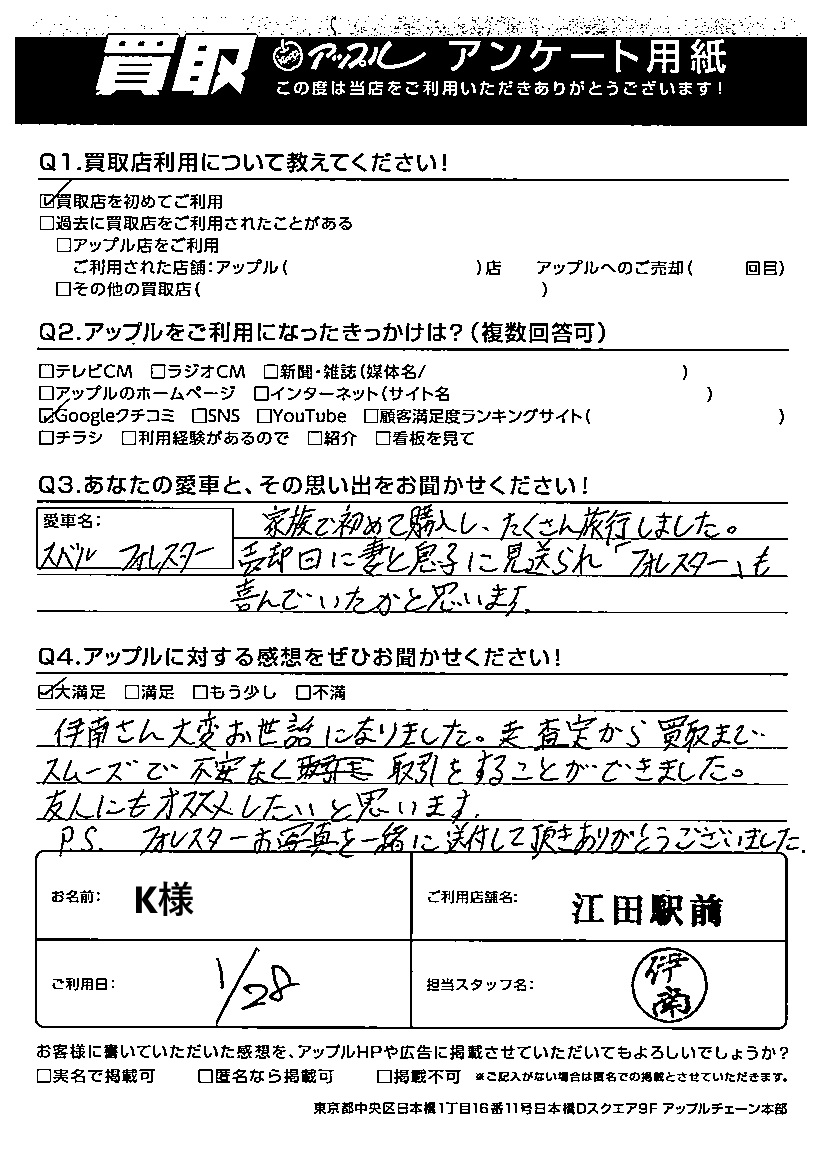 買取 アップル アンケート用紙
この度は当店をご利用いただきありがとうございます!
Q1.買取店利用について教えてください!
☑買取店を初めてご利用
□過去に買取店をご利用されたことがある
□アップル店をご利用
ご利用された店舗:アップル( )店 アップルへのご売却( 回目)
□その他の買取店( )
Q2.アップルをご利用になったきっかけは?(複数回答可)
□テレビCM □ラジオCM □新聞・雑誌(媒体名/ )
□アップルのホームページ □インターネット(サイト名 )
☑Googleクチコミ □SNS □YouTube □顧客満足度ランキングサイト( )
□チラシ □利用経験があるので □紹介 □看板を見て
Q3.あなたの愛車と、その思い出をお聞かせください!
愛車名:
スバル フォレスター
家族で初めて購入し、たくさん旅行しました。
売却日に妻と息子に見送られ「フォレスター」も
喜んでいたかと思います。
Q4.アップルに対する感想をぜひお聞かせください!
☑大満足 □満足 □もう少し □不満
伊南さん大変お世話になりました。 査定から買取まで
スムーズで不安なく 取引をすることができました。
友人にもオススメしたいと思います。
P.S. フォレスターお写真を一緒に送付して頂きありがとうございました。
お名前: K様 ご利用店舗名: 江田駅前
ご利用日: 1/28 担当スタッフ名: 伊南
お客様に書いていただいた感想を、アップルHPや広告に掲載させていただいてもよろしいでしょうか?
□実名で掲載可 □匿名なら掲載可 □掲載不可 ※ご記入がない場合は匿名での掲載とさせていただきます。
東京都中央区日本橋1丁目16番11号日本橋Dスクエア9F アップルチェーン本部